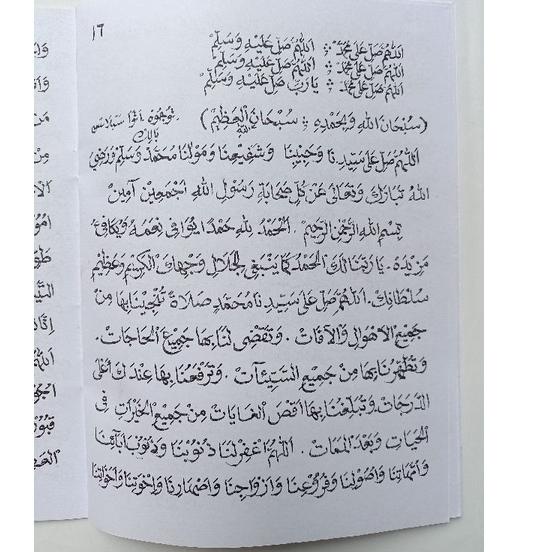 ١٦
اَللّٰهُمَّ صَلِّ عَلَى مُحَمَّدْ ؞ اَللّٰهُمَّ صَلِّ عَلَيْهِ وَسَلِّمْ
اَللّٰهُمَّ صَلِّ عَلَى مُحَمَّدْ ؞ اَللّٰهُمَّ صَلِّ عَلَيْهِ وَسَلِّمْ
اَللّٰهُمَّ صَلِّ عَلَى مُحَمَّدْ ؞ يَارَبِّ صَلِّ عَلَيْهِ وَسَلِّمْ
(سُبْحَانَ اللهِ وَبِحَمْدِهِ ؞ سُبْحَانَ اللهِ الْعَظِيْمِ)
اَللّٰهُمَّ صَلِّ عَلَى سَيِّدِنَا وَحَبِيْبِنَا وَشَفِيْعِنَا وَمَوْلٰنَا مُحَمَّدْ وَسَلِّمْ وَرَضِيَ
اللهُ تَبَارَكَ وَتَعَالَى عَنْ كُلِّ صَحَابَةِ رَسُوْلِ اللهِ اَجْمَعِيْنَ اٰمِيْنْ
بِسْمِ اللهِ الرَّحْمٰنِ الرَّحِيْمِ . اَلْحَمْدُ لِلهِ حَمْدًا يُوَافِى نِعَمَهُ وَيُكَافِئُ
مَزِيْدَهُ . يَا رَبَّنَا لَكَ الْحَمْدُ كَمَا يَنْبَغِى لِجَلَالِ وَجْهِكَ الْكَرِيْمِ وَعَظِيْمِ
سُلْطَانِكَ . اَللّٰهُمَّ صَلِّ عَلَى سَيِّدِنَا مُحَمَّدٍ صَلَاةً تُنْجِيْنَا بِهَا مِنْ
جَمِيْعِ الْاَهْوَالِ وَالْاٰفَاتْ . وَتَقْضِى لَنَا بِهَا جَمِيْعَ الْحَاجَاتْ .
وَتُطَهِّرُنَا بِهَا مِنْ جَمِيْعِ السَّيِّئَآتْ . وَتَرْفَعُنَا بِهَا عِنْدَكَ اَعْلَى
الدَّرَجَاتْ . وَتُبَلِّغُنَا بِهَا اَقْصَ الْغَايَاتْ مِنْ جَمِيْعِ الْخَيْرَاتِ فِى
الْحَيَاتِ وَبَعْدَ الْمَمَاتْ . اَللّٰهُمَّ اغْفِرْ لَنَا ذُنُوْبَنَا وَذُنُوْبَ اٰبَآئِنَا
وَاُمَّهَاتِنَا وَاُصُوْلِنَا وَفُرُوْعِنَا وَاَزْوَاجِنَا وَاَصْهَارِنَا وَاِخْوَتِنَا وَاَخَوٰتِنَا